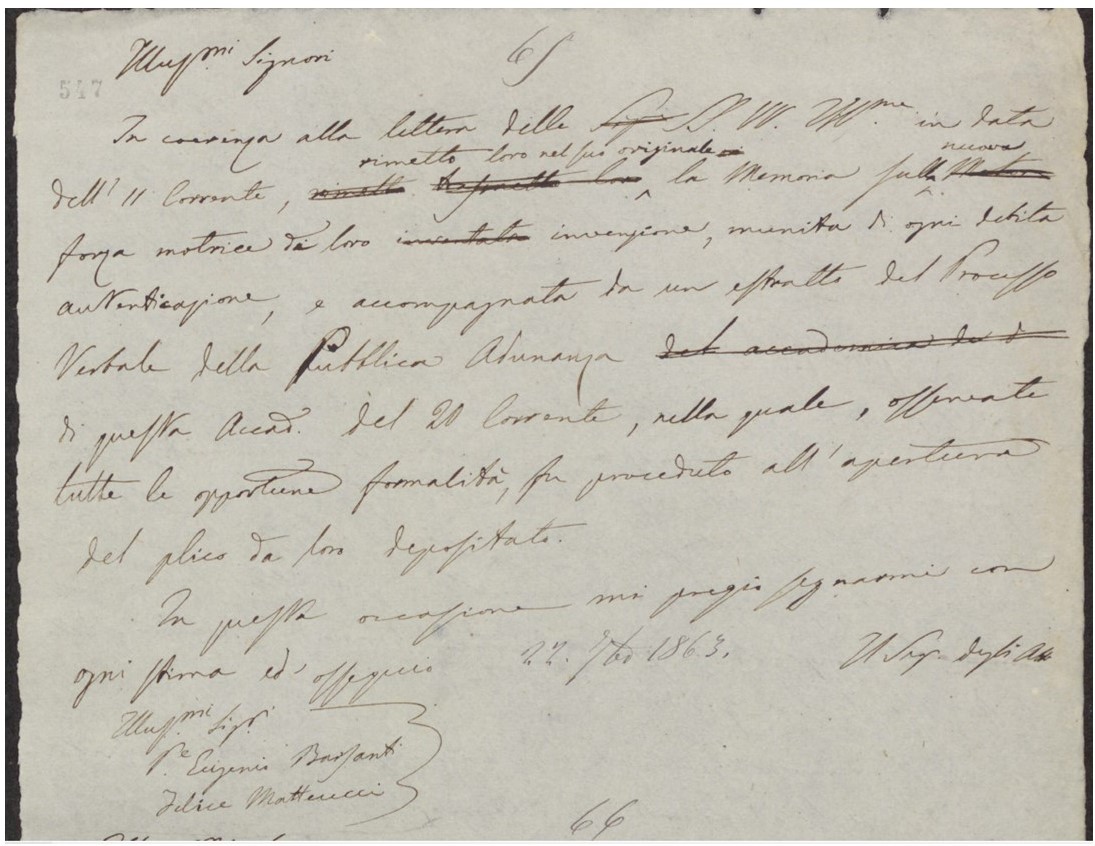 65
Illus.mi Signori
547
In coerenza alla lettera delle Sig SS. VV. Ill.me in data
rimetto loro nel suo originale nuova
dell' 11 Corrente, la Memoria sulla
forza motrice di loro inventata invenzione, munita di ogni debita
autenticazione, e accompagnata da un estratto del Processo
Verbale della Pubblica Adunanza del accademica de d
di questa Accad. del 20 Corrente, nella quale, osservate
tutte le opportune formalità, fu proceduto all' apertura
del plico da loro depositato.
In questa occasione mi pregio segnarmi con
ogni stima ed ossequio 22. 7bre 1863. Il Seg. degli Atti
Illus.mi Sigri
Pe. Eugenio Barsanti
Felice Matteucci
66